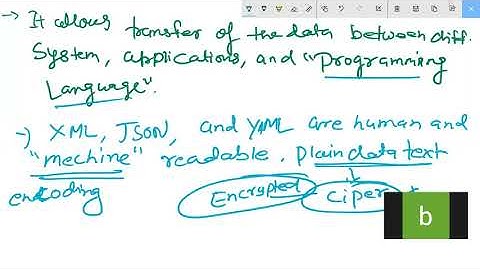 → It allows transfer of the data between diff.
System, applications, and "Programming
Language".
→ XML, JSON, and YAML are human and
"mechine" readable. Plain data text
encoding Encrypted - Ciper t
b